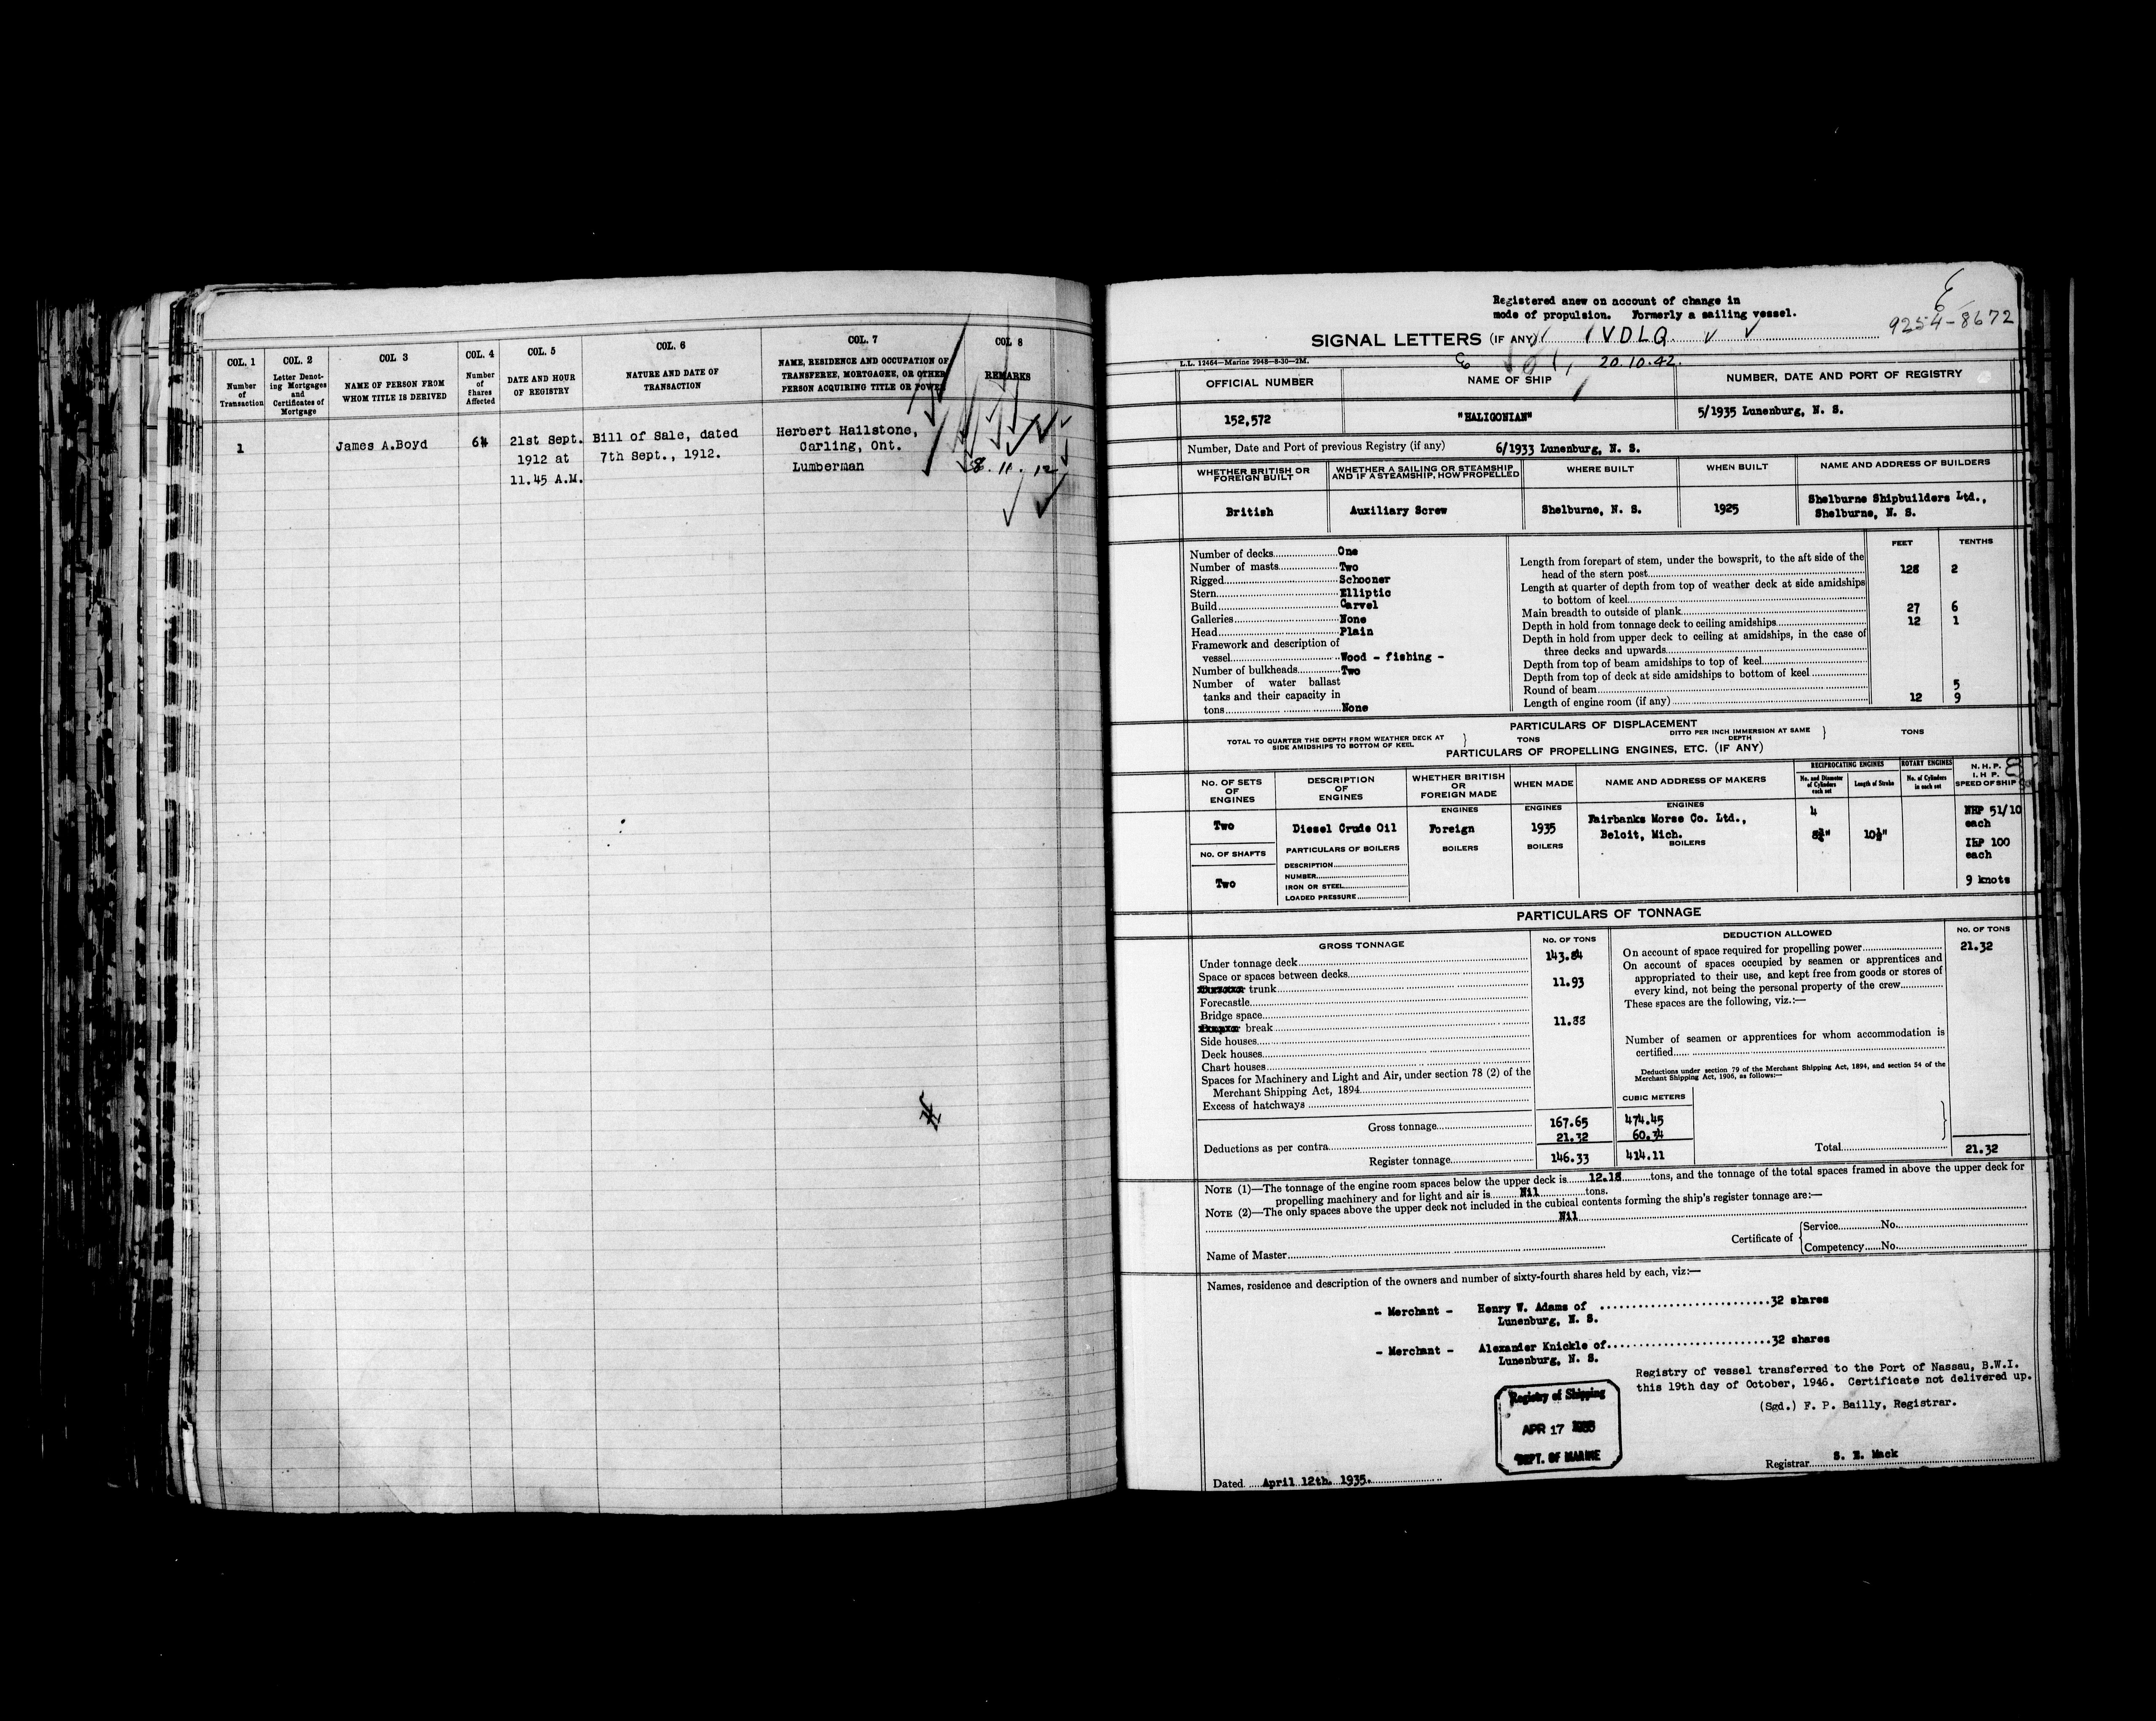 COL. 1
Number
of
Transaction
COL. 2
Letter Denot-
ing Mortgages
and
Certificates of
Mortgage
COL 3
NAME OF PERSON FROM
WHOM TITLE IS DERIVED
COL. 4
Number
of
Shares
Affected
COL. 5
DATE AND HOUR
OF REGISTRY
COL. 6
NATURE AND DATE OF
TRANSACTION
COL. 7
NAME, RESIDENCE AND OCCUPATION OF
TRANSFEREE, MORTGAGEE, OR OTHER
PERSON ACQUIRING TITLE OR POWER
COL 8
REMARKS
1
James A.Boyd
64
21st Sept.
1912 at
11.45 A.M.
Bill of Sale, dated
7th Sept., 1912.
Herbert Hailstone,
Carling, Ont.
Lumberman
8. 11. 12
Registered anew on account of change in
mode of propulsion. Formerly a sailing vessel.
9254-8672
SIGNAL LETTERS (IF ANY) VDLQ
20.10.42.
L.L. 12464—Marine 2948—8-30—2M.
OFFICIAL NUMBER
NAME OF SHIP
NUMBER, DATE AND PORT OF REGISTRY
152,572
"HALIGONIAN"
5/1935 Lunenburg, N. S.
Number, Date and Port of previous Registry (if any) 6/1933 Lunenburg, N. S.
WHETHER BRITISH OR
FOREIGN BUILT
WHETHER A SAILING OR STEAMSHIP
AND IF A STEAMSHIP, HOW PROPELLED
WHERE BUILT
WHEN BUILT
NAME AND ADDRESS OF BUILDERS
British
Auxiliary Screw
Shelburne, N. S.
1925
Shelburne Shipbuilders Ltd.,
Shelburne, N. S.
Number of decks One
Number of masts Two
Rigged Schooner
Stern Elliptic
Build Carvel
Galleries None
Head Plain
Framework and description of
vessel Wood - fishing -
Number of bulkheads Two
Number of water ballast
tanks and their capacity in
tons None
FEET TENTHS
Length from forepart of stem, under the bowsprit, to the aft side of the
head of the stern post 128 2
Length at quarter of depth from top of weather deck at side amidships
to bottom of keel
Main breadth to outside of plank 27 6
Depth in hold from tonnage deck to ceiling amidships 12 1
Depth in hold from upper deck to ceiling at amidships, in the case of
three decks and upwards
Depth from top of beam amidships to top of keel
Depth from top of deck at side amidships to bottom of keel
Round of beam 5
Length of engine room (if any) 12 9
PARTICULARS OF DISPLACEMENT
TOTAL TO QUARTER THE DEPTH FROM WEATHER DECK AT
SIDE AMIDSHIPS TO BOTTOM OF KEEL
TONS
DITTO PER INCH IMMERSION AT SAME
DEPTH
TONS
PARTICULARS OF PROPELLING ENGINES, ETC. (IF ANY)
No. OF SETS
OF
ENGINES
DESCRIPTION
OF
ENGINES
WHETHER BRITISH
OR
FOREIGN MADE
WHEN MADE
NAME AND ADDRESS OF MAKERS
RECIPROCATING ENGINES
No. and Diameter
of Cylinders
each set
Length of Stroke
ROTARY ENGINES
No. of Cylinders
in each set
N. H. P.
I. H P.
SPEED OF SHIP
ENGINES
ENGINES
ENGINES
Two
Diesel Crude Oil
Foreign
1935
Fairbanks Morse Co. Ltd.,
Beloit, Mich.
4
10½"
NHP 51/10
each
IHP 100
each
9 knots
NO. OF SHAFTS
Two
PARTICULARS OF BOILERS
DESCRIPTION
NUMBER
IRON OR STEEL
LOADED PRESSURE
BOILERS
BOILERS
BOILERS
PARTICULARS OF TONNAGE
GROSS TONNAGE
NO. OF TONS
Under tonnage deck 143.84
Space or spaces between decks
trunk 11.93
Forecastle
Bridge space
break 11.88
Side houses
Deck houses
Chart houses
Spaces for Machinery and Light and Air, under section 78 (2) of the
Merchant Shipping Act, 1894
Excess of hatchways
CUBIC METERS
Gross tonnage 167.65 474.45
Deductions as per contra 21.32 60.34
Register tonnage 146.33 414.11
DEDUCTION ALLOWED
NO. OF TONS
On account of space required for propelling power 21.32
On account of spaces occupied by seamen or apprentices and
appropriated to their use, and kept free from goods or stores of
every kind, not being the personal property of the crew
These spaces are the following, viz.:—
Number of seamen or apprentices for whom accommodation is
certified
Deductions under section 79 of the Merchant Shipping Act, 1894, and section 54 of the
Merchant Shipping Act, 1906, as follows:—
Total 21.32
NOTE (1)—The tonnage of the engine room spaces below the upper deck is 12.18 tons, and the tonnage of the total spaces framed in above the upper deck for
propelling machinery and for light and air is Nil tons.
NOTE (2)—The only spaces above the upper deck not included in the cubical contents forming the ship's register tonnage are:—
Nil
Name of Master
Certificate of
Service No.
Competency No.
Names, residence and description of the owners and number of sixty-fourth shares held by each, viz:—
- Merchant - Henry W. Adams of 32 shares
Lunenburg, N. S.
- Merchant - Alexander Knickle of 32 shares
Lunenburg, N. S.
Registry of vessel transferred to the Port of Nassau, B.W.I.
this 19th day of October, 1946. Certificate not delivered up.
(Sgd.) F. P. Bailly, Registrar.
Registry of Shipping
APR 17
DEPT. OF MARINE
Dated April 12th. 1935.
Registrar S. E. Mack